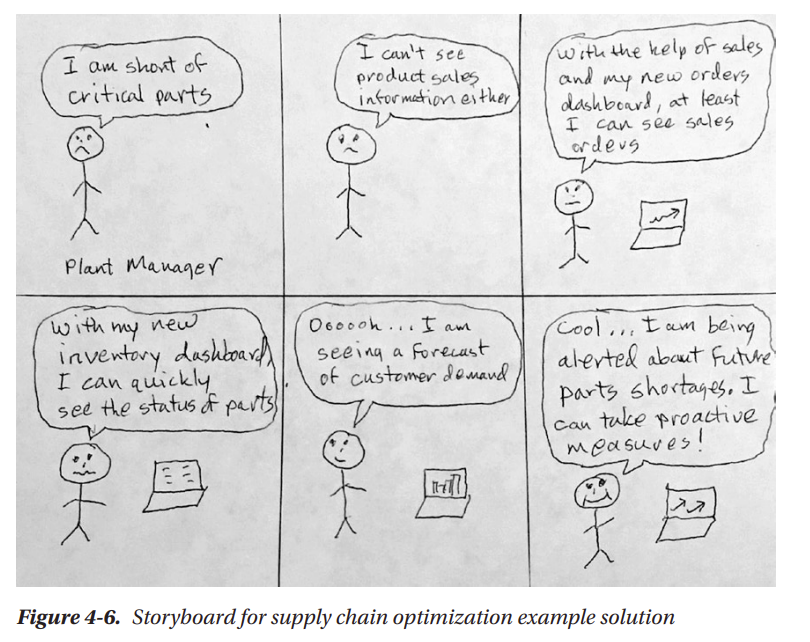 I am short of
critical parts
Plant Manager
I can't see
product sales
information either
With the help of sales
and my new orders
dashboard, at least
I can see sales
orders
With my new
inventory dashboard,
I can quickly
see the status of parts
Oooooh... I am
seeing a forecast
of customer demand
Cool... I am being
alerted about future
parts shortages. I
can take proactive
measures!
Figure 4-6. Storyboard for supply chain optimization example solution